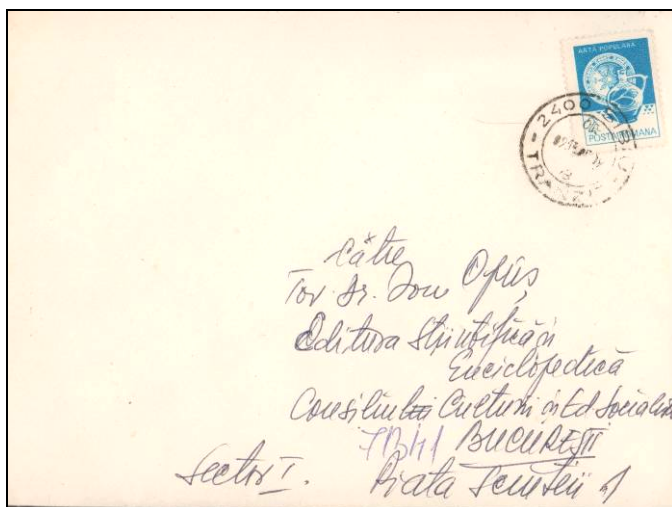 ARTĂ POPULARĂ
POSTA ROMANA
2400 SIBIU
TRANZIT
Către
Tov. Dr. Ion Opriș
Editura Științifică și
Enciclopedică
Consiliul Culturii și Ed Socialiste
71341 BUCUREȘTI
Sector I. Piata Scînteii 1